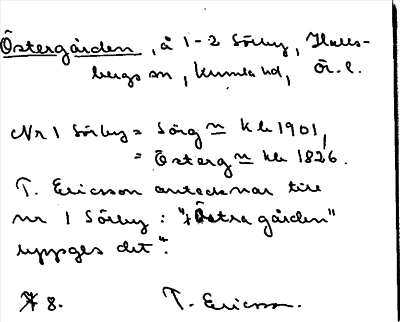 Östergården, å 1-2 Sörby, Halls-
bergs sn, Kumla hd, Ör. l.
Nr 1 Sörby = Sörg~ kb 1901,
= Österg~ kb 1826.
T. Ericson antecknar till
nr 1 Sörby: "Östra gården"
uppges det".
8. T. Ericson.